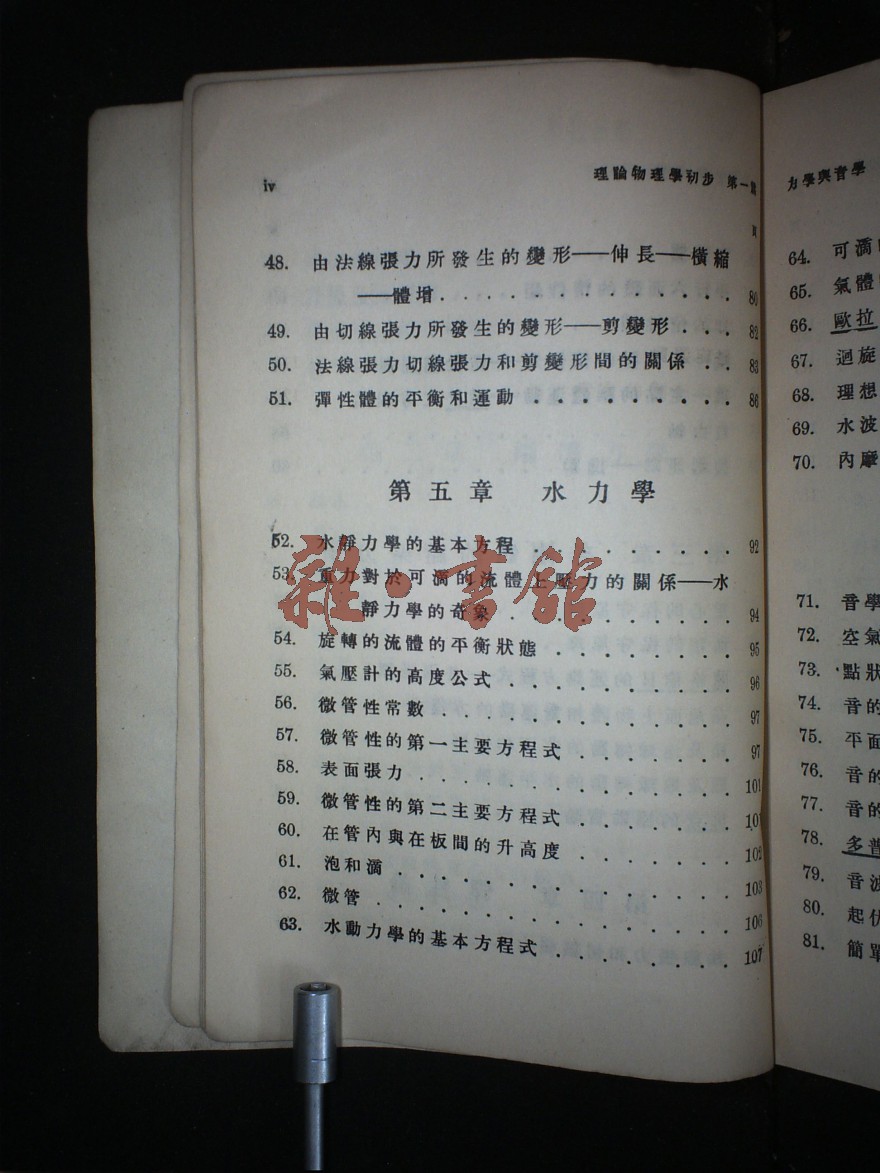 iv
理論物理學初步 第一
48. 由法線張力所發生的變形——伸長——橫縮
——體增 80
49. 由切線張力所發生的變形——剪變形 82
50. 法線張力切線張力和剪變形間的關係 83
51. 彈性體的平衡和運動 86
第五章 水力學
52. 水靜力學的基本方程 92
53. 重力對於可滴的流體上壓力的關係——水
靜力學的奇象 94
54. 旋轉的流體的平衡狀態 95
55. 氣壓計的高度公式 96
56. 微管性常數 97
57. 微管性的第一主要方程式 97
58. 表面張力 101
59. 微管性的第二主要方程式 101
60. 在管內與在板間的升高度 102
61. 泡和滴 103
62. 微管 106
63. 水動力學的基本方程式 107
雜·書館
力學與音學
64. 可滴
65. 氣體
66. 歐拉
67. 迴旋
68. 理想
69. 水波
70. 內摩
71. 音學
72. 空氣
73. 點狀
74. 音的
75. 平面
76. 音的
77. 音的
78. 多普
79. 音波
80. 起伏
81. 簡單